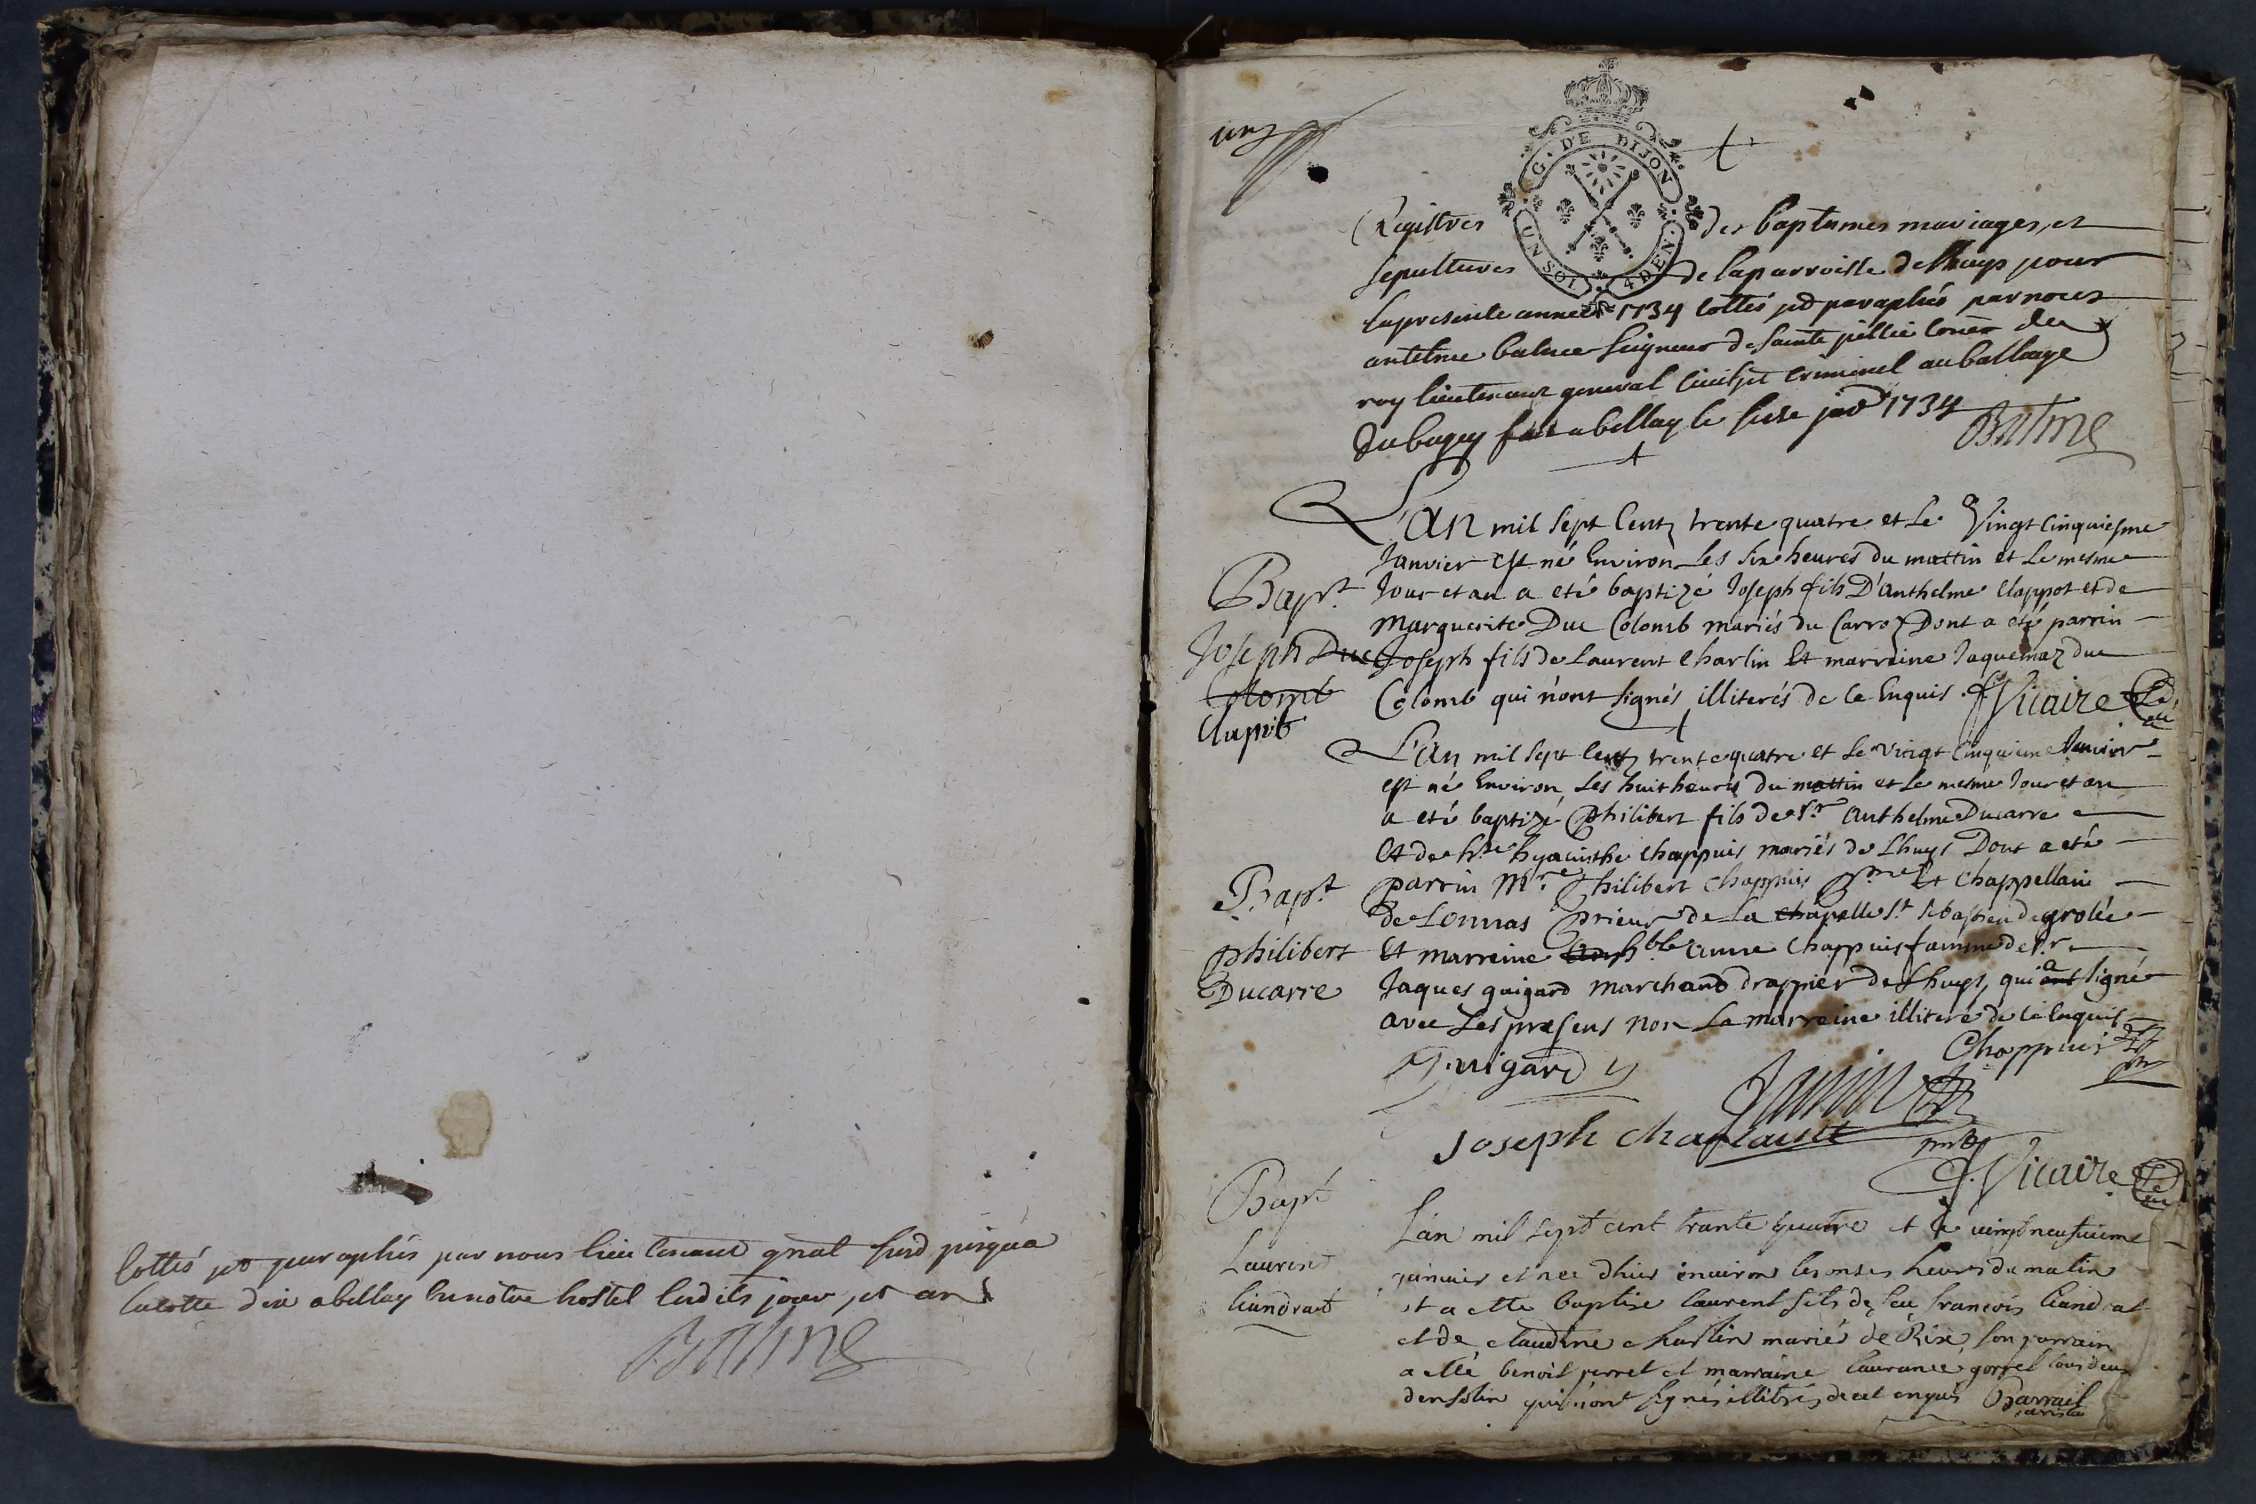 Cottés et paraphés par nous lieutenant gnal susd jusqu'a
la cotte dix a bellay en notre hostel lesdits jour, et an
Balme
un
G. DE DIJON
UN SOL 4 DEN.
Registres des baptemes mariages, et
sepultures de la parroisse de Lhuys pour
la presente année 1734 cottés et paraphés par nous
antelme balme seigneur de sainte jullie coner du
roy lieutenant general civil et criminel au balliage
du bugey fait a bellay le seize janr 1734
Balme
L'an mil sept cent trente quatre et le vingt cinquiesme
Janvier est né Environ les six heures du mattin et le mesme
Bapt.
Jour et an a eté baptizé Joseph fils D'anthelme Clappot et de
Marguerite Duc Colomb mariés du Carroz Dont a eté parrin
Joseph Duc
Joseph fils de Laurent Charlin Et marreine Jaquemaz duc
Colomb
Colomb qui n'ont signés illiterés de ce Enquis. Vicaire
Clappot
L'an mil sept cent trente quatre et le vingt cinquieme Janvier
est né Environ les huit heures du mattin et le mesme Jour et an
a eté baptizé Philibert fils de Sr. Anthelme Ducarre
Et de hyacinthe Chappuis mariés de Lhuys Dont a eté
Bapt.
parrin Mre. Philibert Chappuis et Chappellain
de Lonnas Prieur de la Chapelle St. sebastien de grolée
philibert
Et marreine hble anne Chappuis famme de Sr.
Ducarre
Jaques guigard Marchand drappier de Lhuys, qui a signé
avec Les presens non La marreine illiteré de ce Enquis
Chappuis
Guigard
Janin
Joseph
Vicaire
Bapt
Lan mil sept cent trante quatre et le vingt neufvieme
Laurent
janvier et nee d'hier environ les onses heures du matin
Liandrat
et a ette baptise laurent fils de feu francois liandrat
et de claudine charlin mariés de Rix, son parrain
a etté benoit perret et marraine laurance gorrel tous deux
d'ensolin qui n'ont signés illitrés de cet enquis Barrail